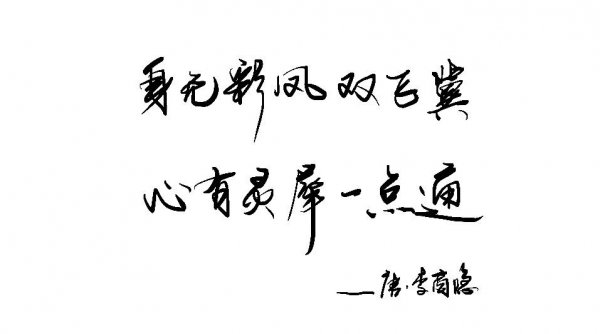 身无彩凤双飞翼
心有灵犀一点通
——唐·李商隐